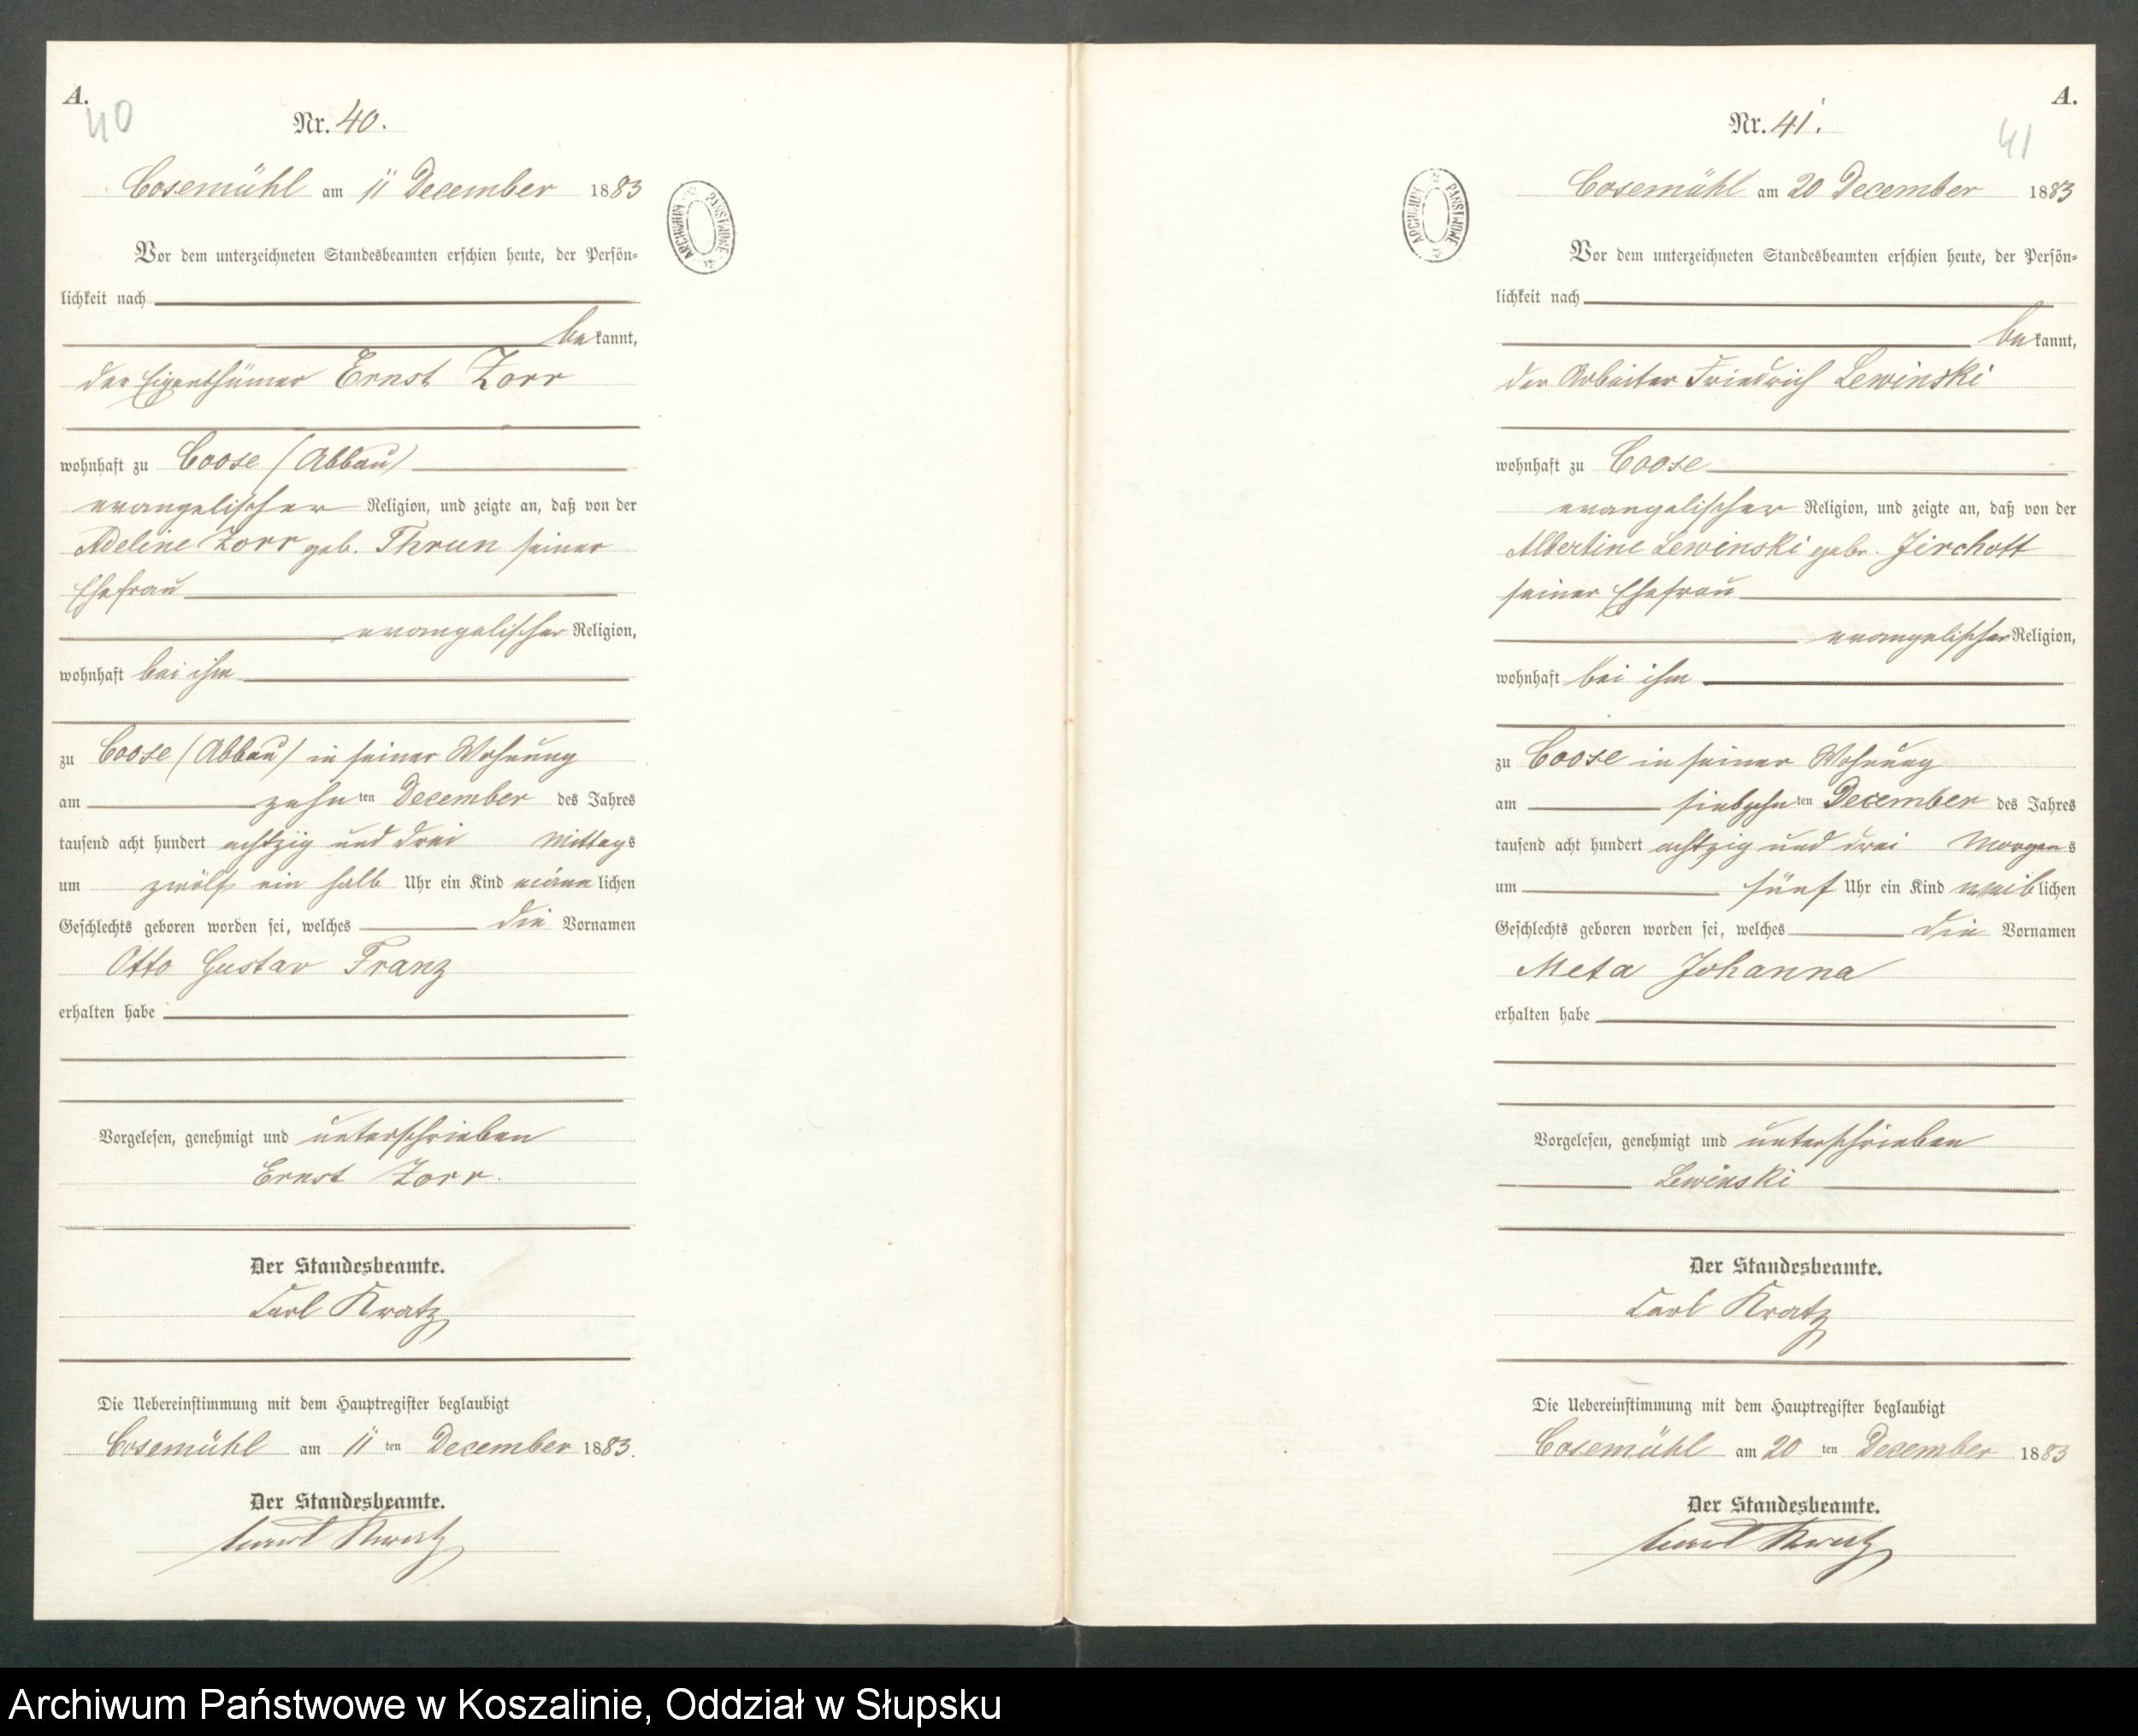 A.
40
Nr. 40.
Cosemühl am 11 December 1883
Vor dem unterzeichneten Standesbeamten erschien heute, der Persön-
lichkeit nach
bekannt,
der Eigenthümer Ernst Zorr
wohnhaft zu Coose (Abbau)
evangelischer Religion, und zeigte an, daß von der
Adeline Zorr geb. Thrun seiner
Ehefrau
evangelischer Religion,
wohnhaft bei ihm
zu Coose (Abbau) in seiner Wohnung
am zehnten December des Jahres
tausend acht hundert achtzig und drei Mittags
um zwölf ein halb Uhr ein Kind männlichen
Geschlechts geboren worden sei, welches die Vornamen
Otto Gustav Franz
erhalten habe
Vorgelesen, genehmigt und unterschrieben
Ernst Zorr.
Der Standesbeamte.
Carl Kratz
Die Uebereinstimmung mit dem Hauptregister beglaubigt
Cosemühl am 11ten December 1883.
Der Standesbeamte.
Carl Kratz
ARCHIWUM PAŃSTWOWE
A.
41
Nr. 41.
Cosemühl am 20 December 1883
ARCHIWUM PAŃSTWOWE
Vor dem unterzeichneten Standesbeamten erschien heute, der Persön-
lichkeit nach
bekannt,
der Arbeiter Friedrich Lewinski
wohnhaft zu Coose
evangelischer Religion, und zeigte an, daß von der
Albertine Lewinski gebr. Jirchott
seiner Ehefrau
evangelischer Religion,
wohnhaft bei ihm
zu Coose in seiner Wohnung
am siebzehnten December des Jahres
tausend acht hundert achtzig und drei Morgens
um fünf Uhr ein Kind weiblichen
Geschlechts geboren worden sei, welches die Vornamen
Meta Johanna
erhalten habe
Vorgelesen, genehmigt und unterschrieben
Lewinski
Der Standesbeamte.
Carl Kratz
Die Uebereinstimmung mit dem Hauptregister beglaubigt
Cosemühl am 20 ten December 1883
Der Standesbeamte.
Carl Kratz
Archiwum Państwowe w Koszalinie, Oddział w Słupsku